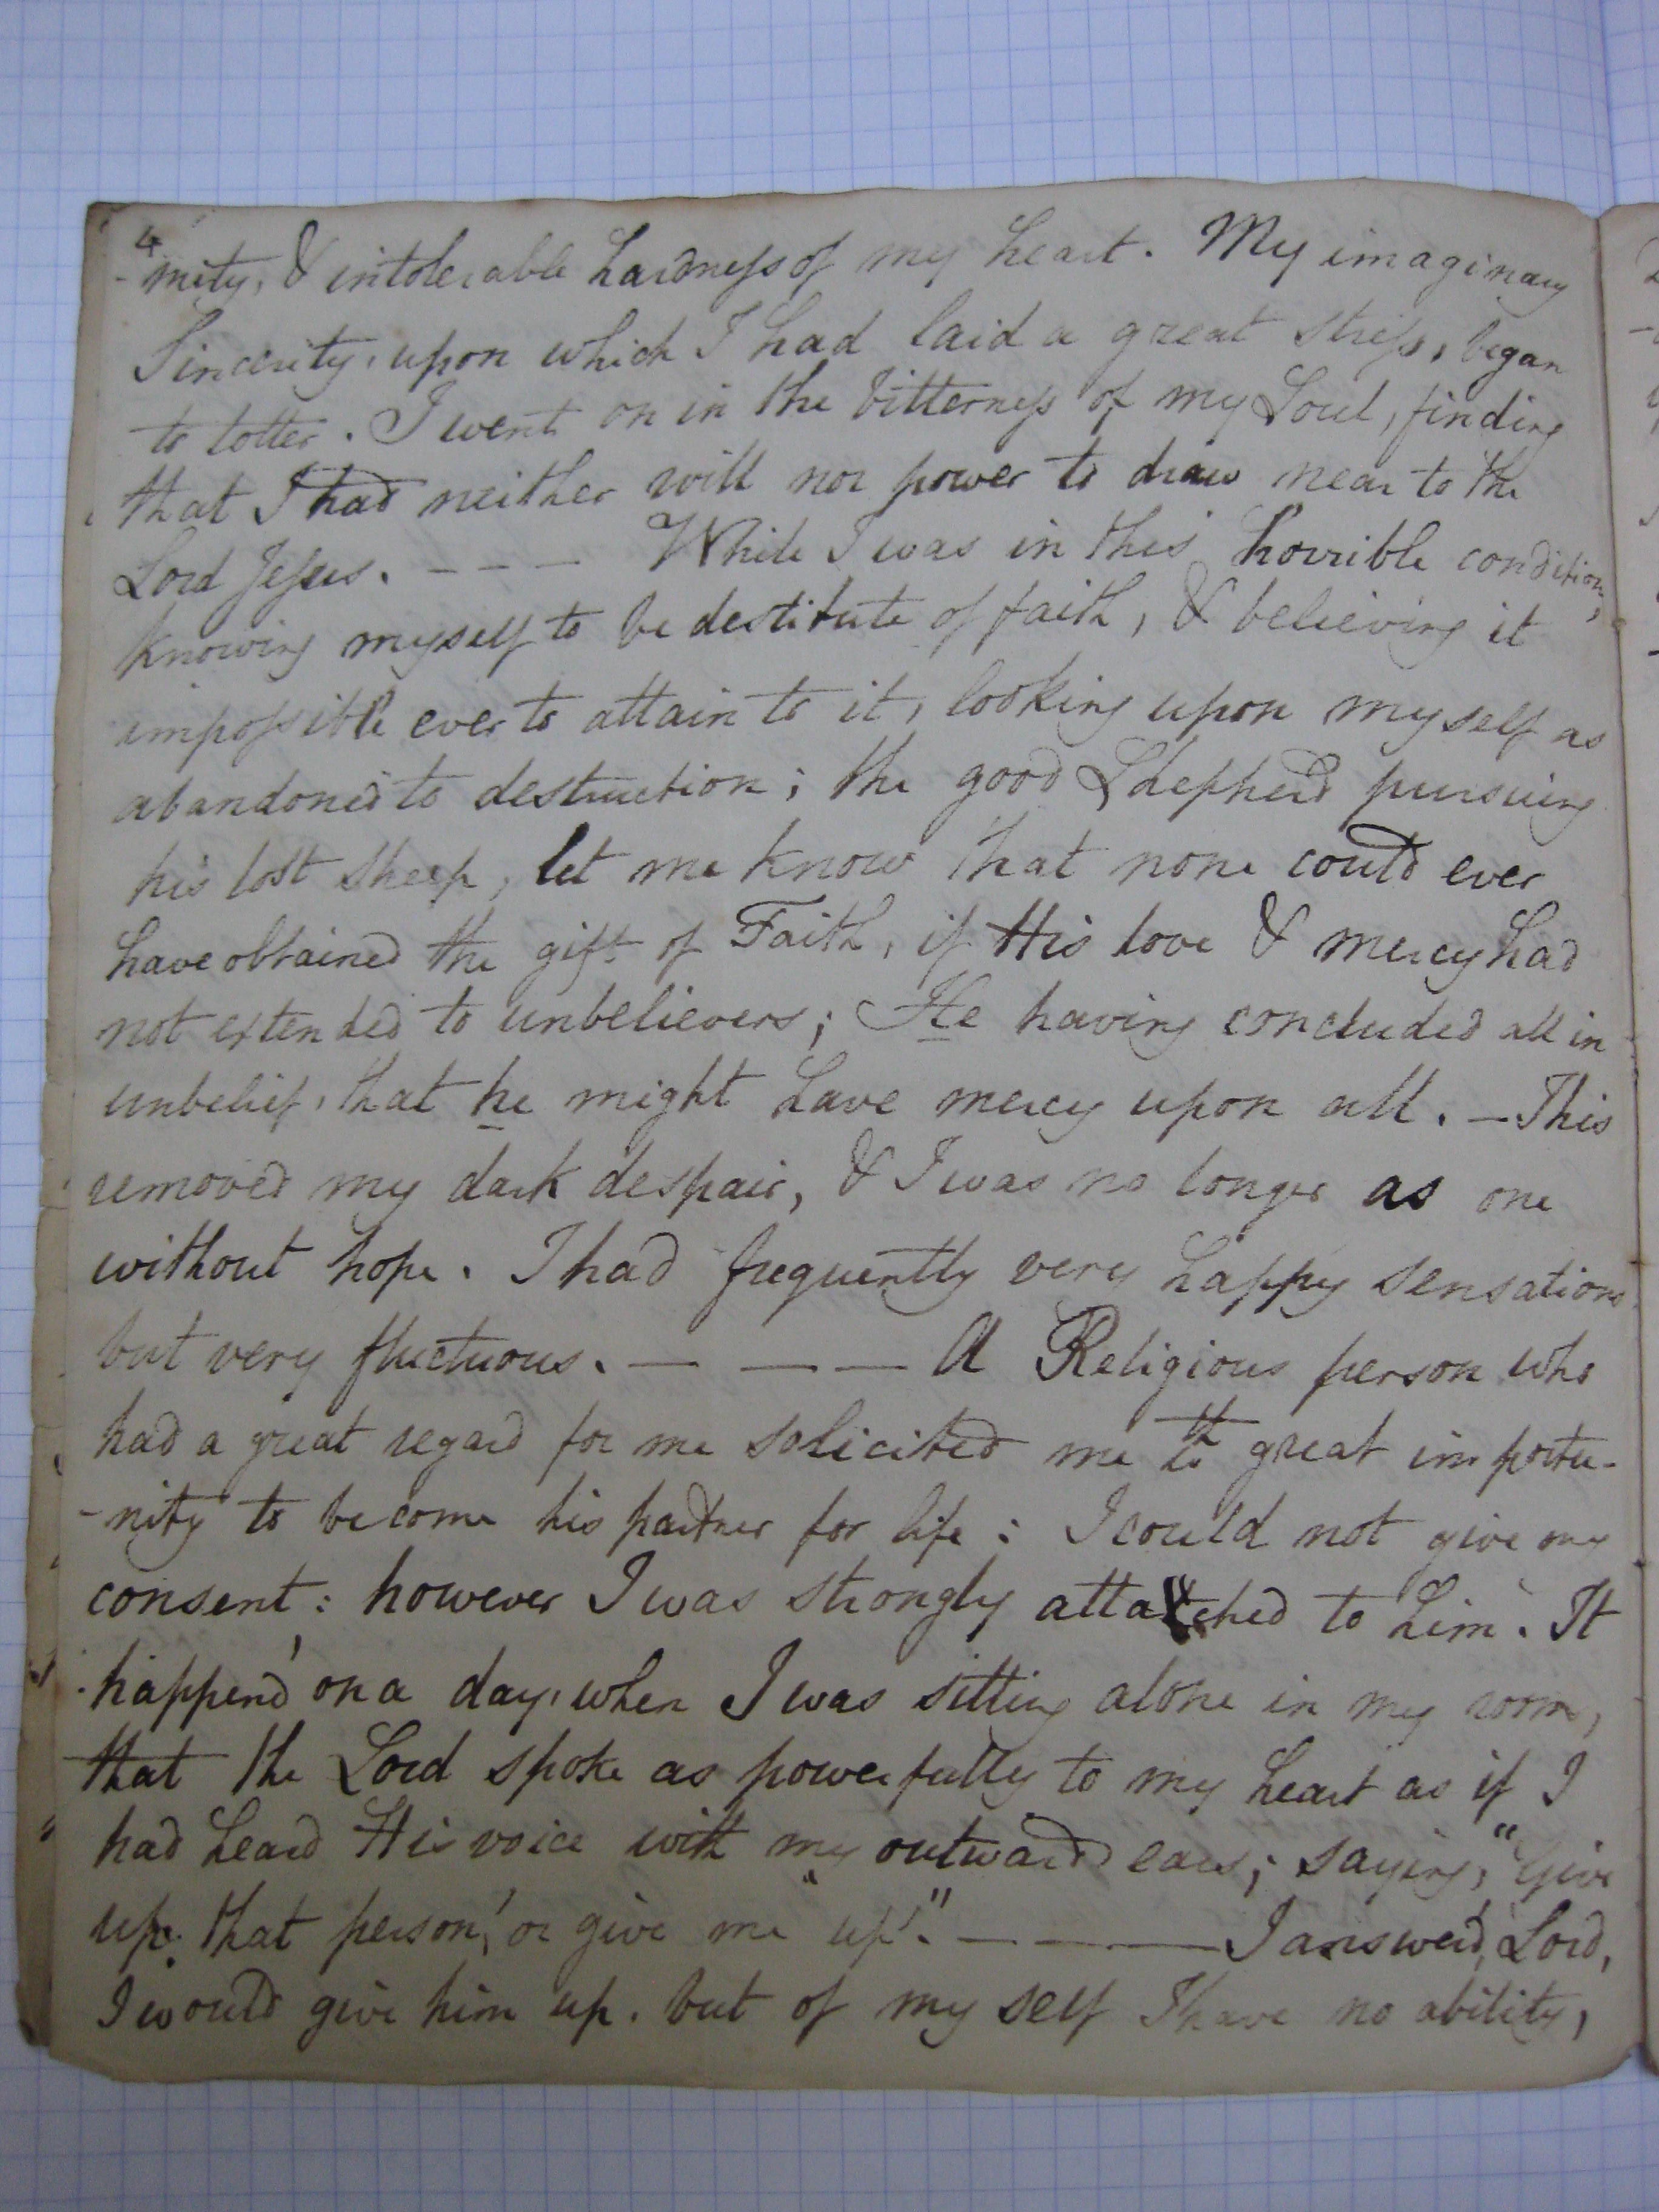 4
-mity, & intolerable hardness of my heart. My imaginary
Sincerity, upon which I had laid a great stress, began
to totter. I went on in the bitterness of my Soul, finding
that I had neither will nor power to draw near to the
Lord Jesus. - - - While I was in this horrible condition,
knowing myself to be destitute of faith, & believing it
impossible ever to attain to it, looking upon myself as
abandoned to destruction; the good Shepherd pursuing
his lost sheep, let me know that none could ever
have obtained the gift of Faith, if His love & mercy had
not extended to unbelievers; He having concluded all in
unbelief, that he might have mercy upon all. — This
removed my dark despair, & I was no longer as one
without hope. I had frequently very happy sensations
but very fluctuous. — — — A Religious person who
had a great regard for me solicited me wth great importu-
-nity to become his partner for life: I could not give my
consent: however I was strongly attached to him. It
happen'd on a day, when I was sitting alone in my room,
that the Lord spoke as powerfully to my heart as if I
had heard His voice with my outward ears; saying, "Give
up that person, or give me up." — — — I answer'd, Lord,
I would give him up. but of my self I have no ability,